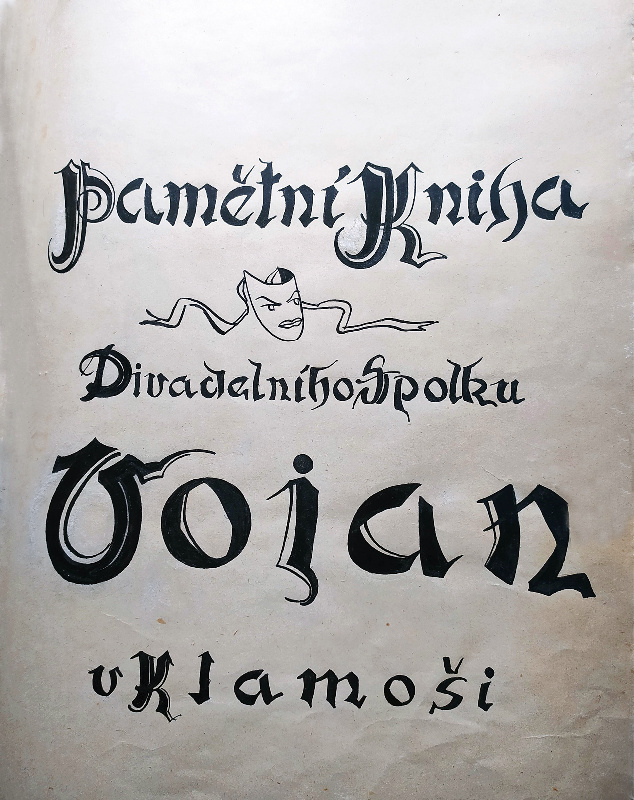 Pamětní Kniha
Divadelního Spolku
Vojan
v Klamoši